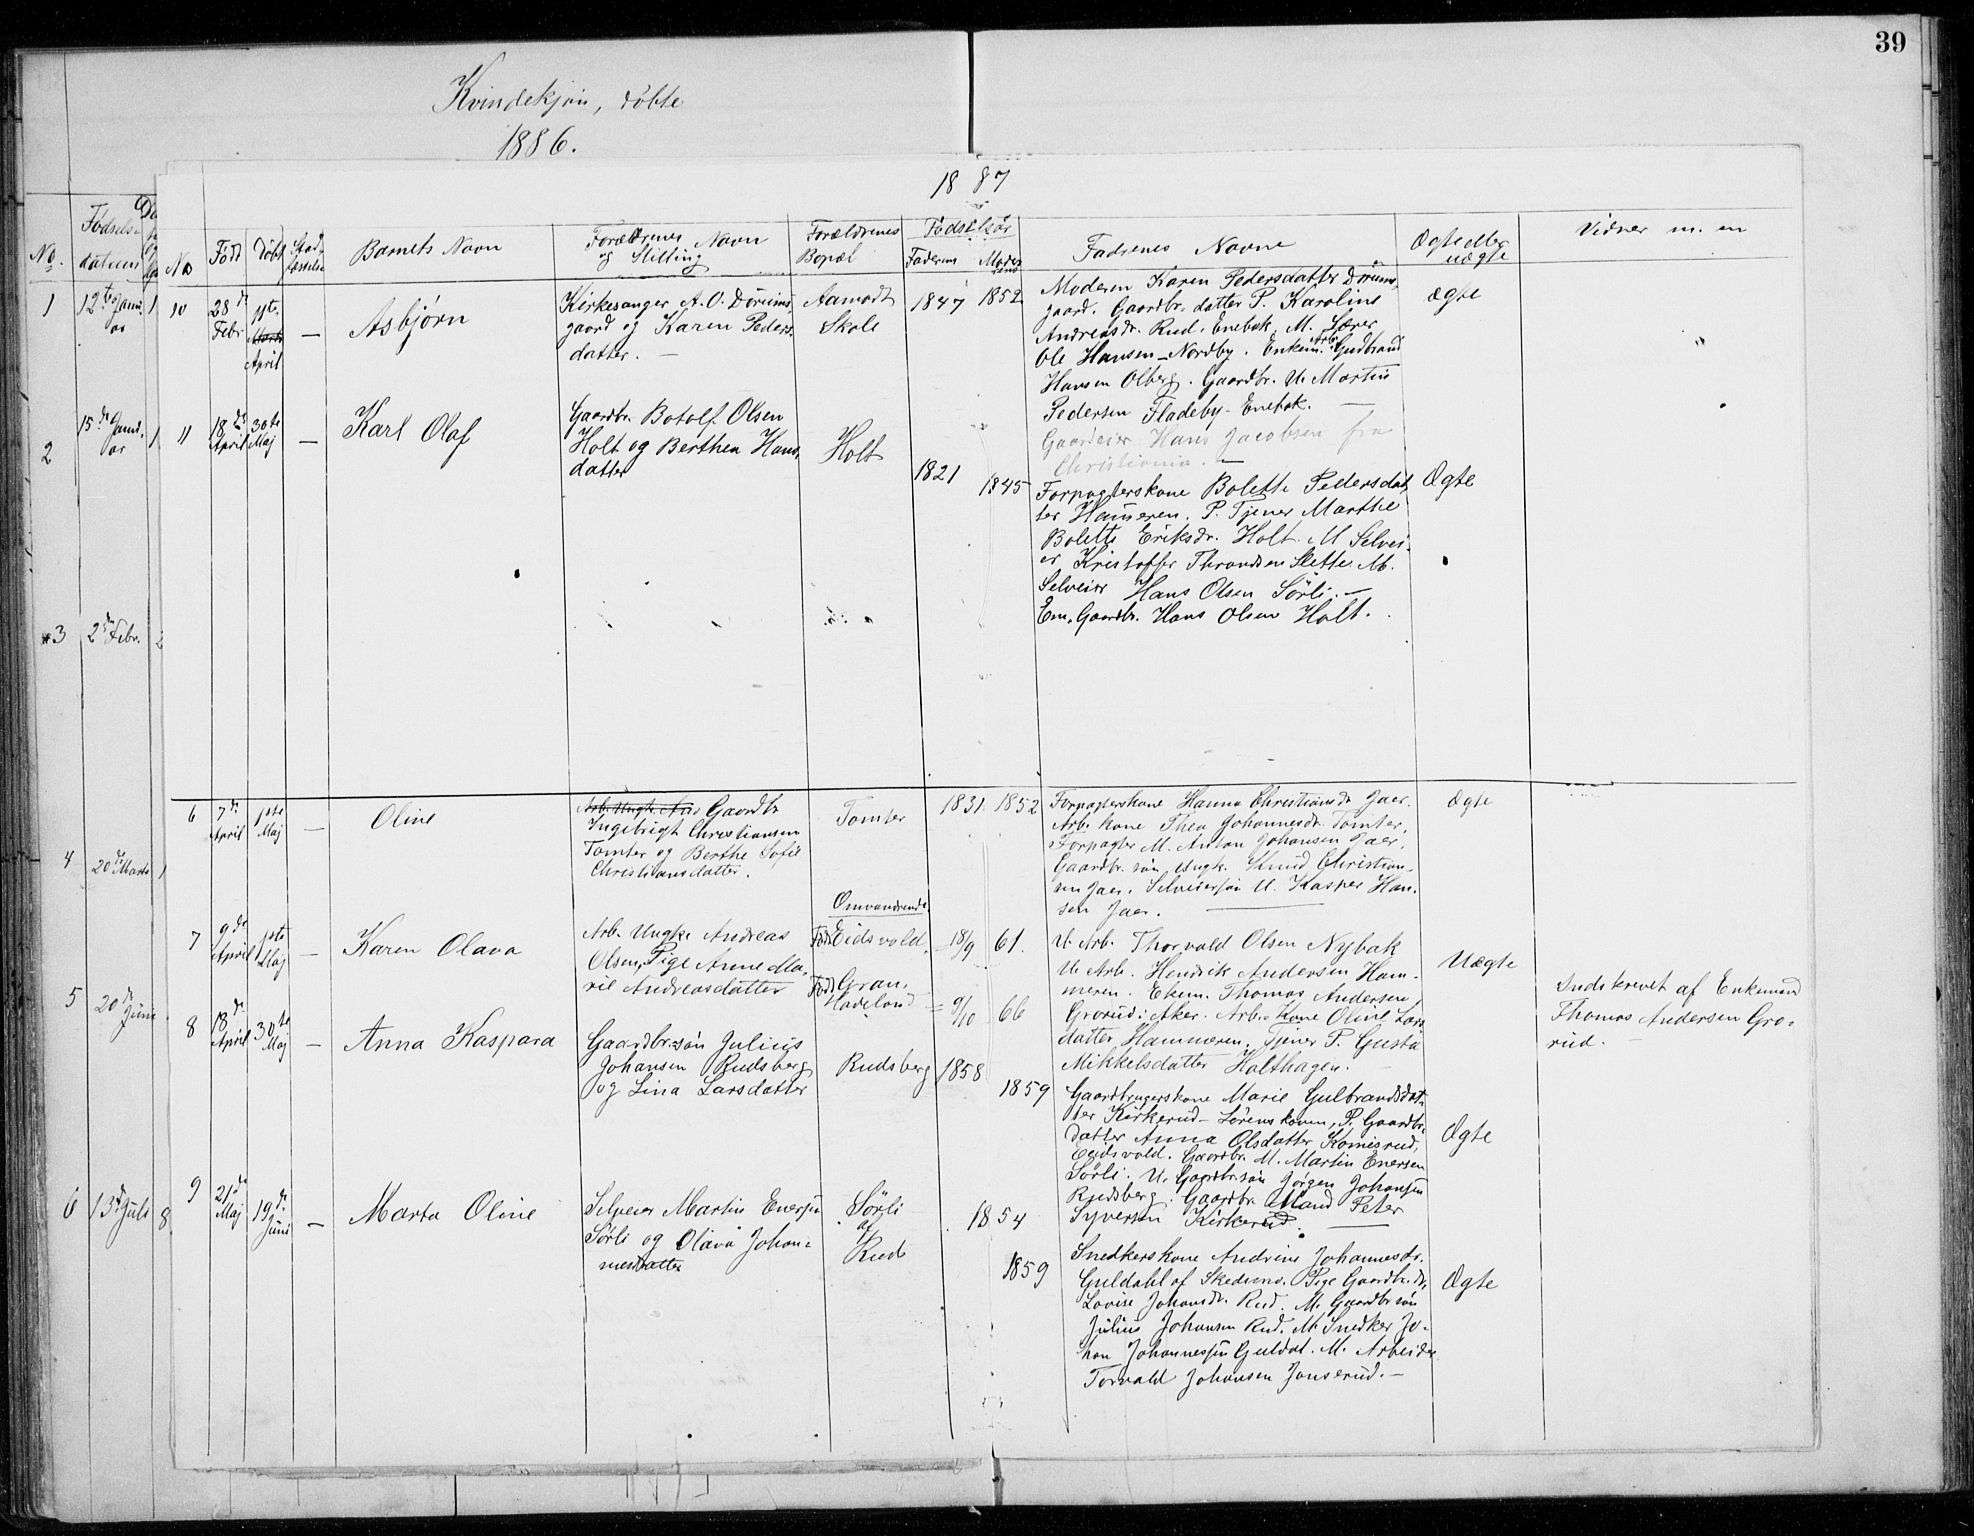 39
Kvindekjøn, døbte
1886.
1887
No.
Fødsels-
datum
No
Født
Døbt
Stad-
fæstelse
Barnets Navn
Forældrenes Navn
og Stilling
Forældrenes
Bopæl
Fødselsår
Faderens
Moderens
Fadrenes Navne
Ægte eller
uægte
Vidner m. en
1
12te Janu-
ar
2
15de Janu-
ar
3
2den Febr.
4
20de Marts
5
20de Juni
6
13de Juli
10
28de
Febr.
11te
Marts
April
—
Asbjørn
Kirkesanger A. O. Dørums-
gaard og Karen Peders-
datter. —
Aamodt
Skole
1847
1852
Moderen Karen Pedersdatter Dørums-
gaard. Gaardbr. datter P. Karoline
Andreasdr. Rud, Enebak, M. Lærer
Ole Hansen Nordby. Enkem. Arb. Gudbrand
Hansen Olberg. Gaardbr. U. Martin
Pedersen Fladeby - Enebak. —
Gaardeier Hans Jacobsen fra
Christiania. —
Ægte
11
18de
April
30te
Maj
—
Karl Olaf
Gaardbr. Botolf Olsen
Holt og Berthea Hans-
datter
Holt
1821
1845
Forpagterskone Bolette Pedersdat-
ter Hammeren. P. Tjener Marthe
Bolette Eriksdr. Holt. M Selvei-
er Kristoffer Throndsen Slette M.
Selveier Hans Olsen Sørli. —
Em. Gaardbr. Hans Olsen Holt.
Ægte
6
7de
April
1ste
Maj
—
Oline
Arb. Ungk. Gaardbr.
Ingebrigt Christiansen
Tomter og Berthe Sofie
Christiansdatter.
Tomter
1831.
1852
Forpagterskone Hanna Christiansdr. Jaer.
Arb. kone Thea Johannesdr. Tomter,
Forpagter M. Anton Johansen Jaer,
Gaardbr. søn Ungk. Knud Christian-
sen Jaer. Selveiersøn U. Kasper Han-
sen Jaer. —
Ægte
7
9de
April
1ste
Maj
—
Karen Olava
Arb. Ungke Andreas
Olsen, Pige Anne Ma-
rie Andreasdatter
Omvandrende.
Født Eidsvold.
Født Gran,
Hadeland
18/9 61.
9/10 66
U. Arb. Thorvald Olsen Nybak
U. Arb. Hendrik Andersen Ham-
meren. Ekem. Thomas Andersen
Grorud i Aker. Arb. Kone Oline Lars-
datter Hammeren. Tjener P. Gusta
Mikkelsdatter Holthagen. —
Uægte
Indskrevet af Enkemand
Thomas Andersen Gro-
rud. —
8
18de
April
30te
Maj
—
Anna Kaspara
Gaardbr. søn Julius
Johansen Rudsberg
og Lina Larsdatter
Rudsberg
1858
1859
Gaardbrugerskone Marie Gulbrandsdat-
ter Kirkerud - Lørenskoven, P. Gaardbr.
datter Anna Olsdatter Komisrud,
Eidsvold. Gaardbr. M. Martin Enersen
Sørli. U. Gaardbr. søn Jørgen Johansen
Rudsberg. Gaardbr. Mand Peter
Syversen Kirkerud. —
Ægte
9
21de
Maj
19de
Juni
—
Marta Oline
Selveier Martin Enersen
Sørli og Olava Johan-
nesdatter
Sørli
af
Rud
1854
1859
Snedkerskone Andrine Johannesdr.
Guldahl af Skedsmo. Pige Gaardbr. dr.
Lovise Johansdr. Rud. M. Gaardbr søn
Julius Johansen Rud. M. Snedker Jo-
han Johannessen Guldal. M. Arbeider
Torvald Johansen Jonserud. —
Ægte